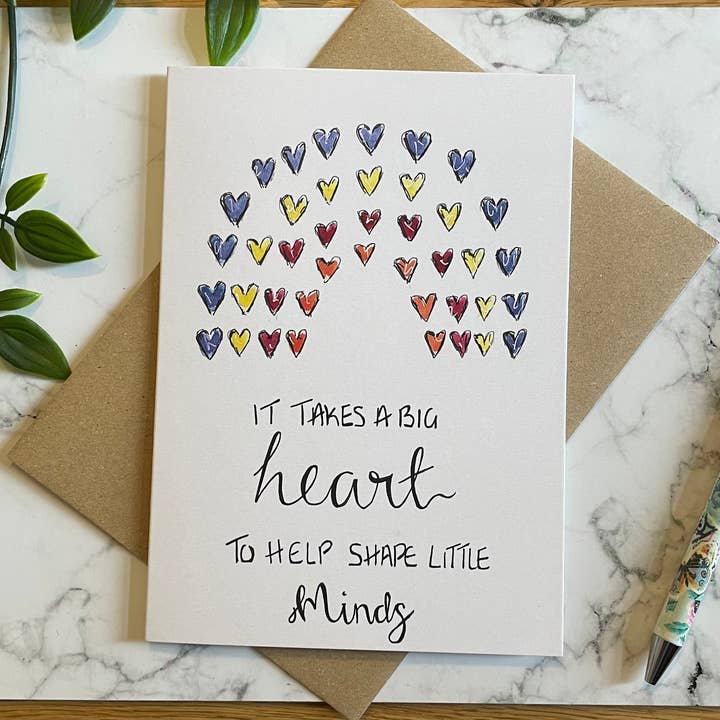 IT TAKES A BIG
heart
TO HELP SHAPE LITTLE
Minds